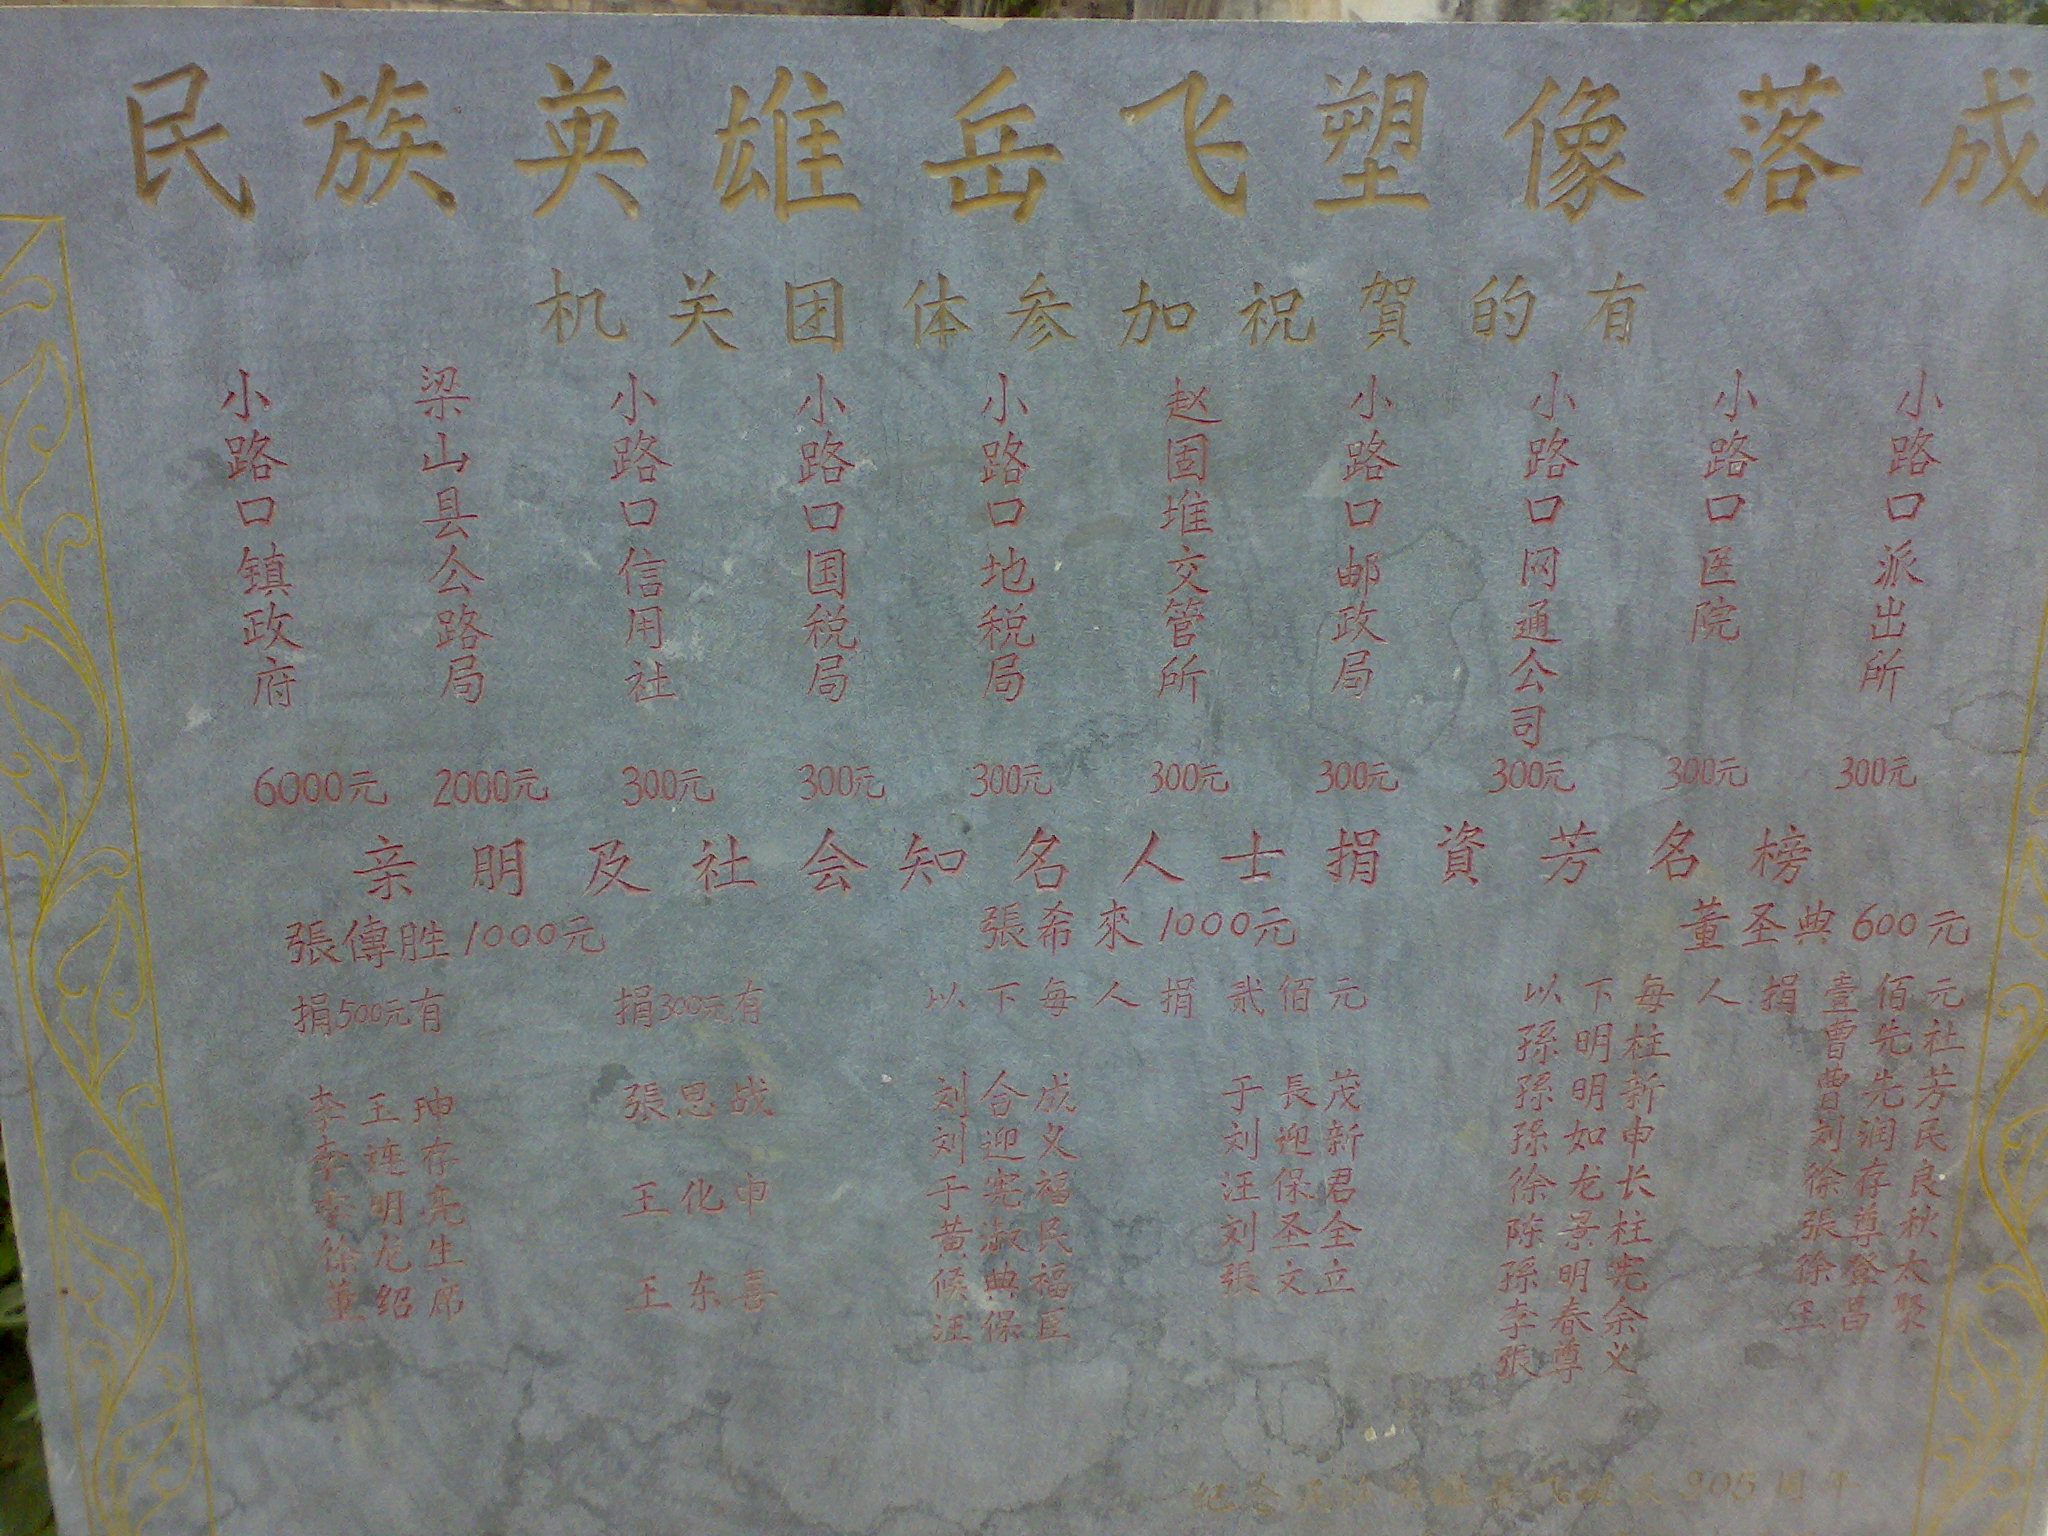 民族英雄岳飞塑像落成
机关团体参加祝賀的有
小路口镇政府 6000元
梁山县公路局 2000元
小路口信用社 300元
小路口国税局 300元
小路口地税局 300元
赵固堆交管所 300元
小路口邮政局 300元
小路口网通公司 300元
小路口医院 300元
小路口派出所 300元
亲朋及社会知名人士捐資芳名榜
張傳胜1000元 張希來1000元 董圣典600元
捐500元有
李玉珅
李连存
李明亮
徐龙生
董绍席
捐300元有
張思战
王化申
王东喜
以下每人捐贰佰元
刘合成
刘迎义
于宪福
黄淑民
候典福
汪保臣
于長茂
刘迎新
汪保君
刘圣全
張文立
以下每人捐壹佰元
孫明柱
孫明新
孫如申
徐龙长
陈景柱
孫明宪
李春余
張尊义
曹先社
曹先芳
刘润民
徐存良
張尊秋
徐登太
王昌聚
905周年